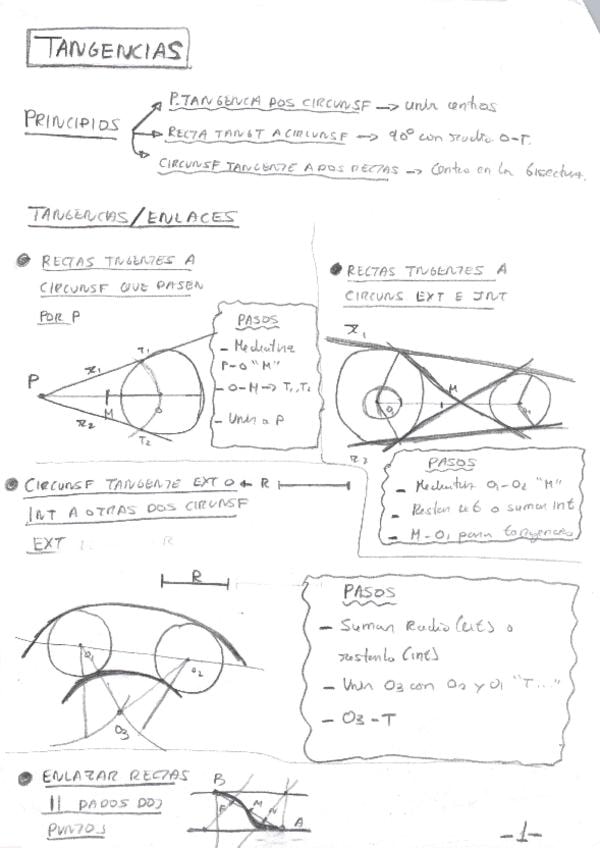 TANGENCIAS
PRINCIPIOS
P. TANGENCIA DOS CIRCUNSF → unir centros
RECTA TANGT A CIRCUNSF → 90° con radio O-T.
CIRCUNSF TANGENTE A DOS RECTAS → Centro en la bisectriz.
TANGENCIAS/ENLACES
RECTAS TNGENTES A
CIRCUNSF QUE PASEN
POR P
PASOS
- Mediatriz
P-O "M"
- O-M → T1, T2
- Unir a P
P
r1
T1
M
O
r2
T2
RECTAS TNGENTES A
CIRCUNS EXT E INT
r1
O1
M
O2
r2
PASOS
- Mediatriz O1-O2 "M"
- Restar ext o sumar int
- M-O1 para tangencias
CIRCUNSF TANGENTE EXT O ← R
INT A OTRAS DOS CIRUNSF
EXT
R
O1
O2
O3
PASOS
- Sumar Radio (ext) o
restarlo (int)
- Unir O3 con O2 y O1 "T..."
- O3-T
ENLAZAR RECTAS
|| DADOS DOS
PUNTOS
B
M
N
A
-1-